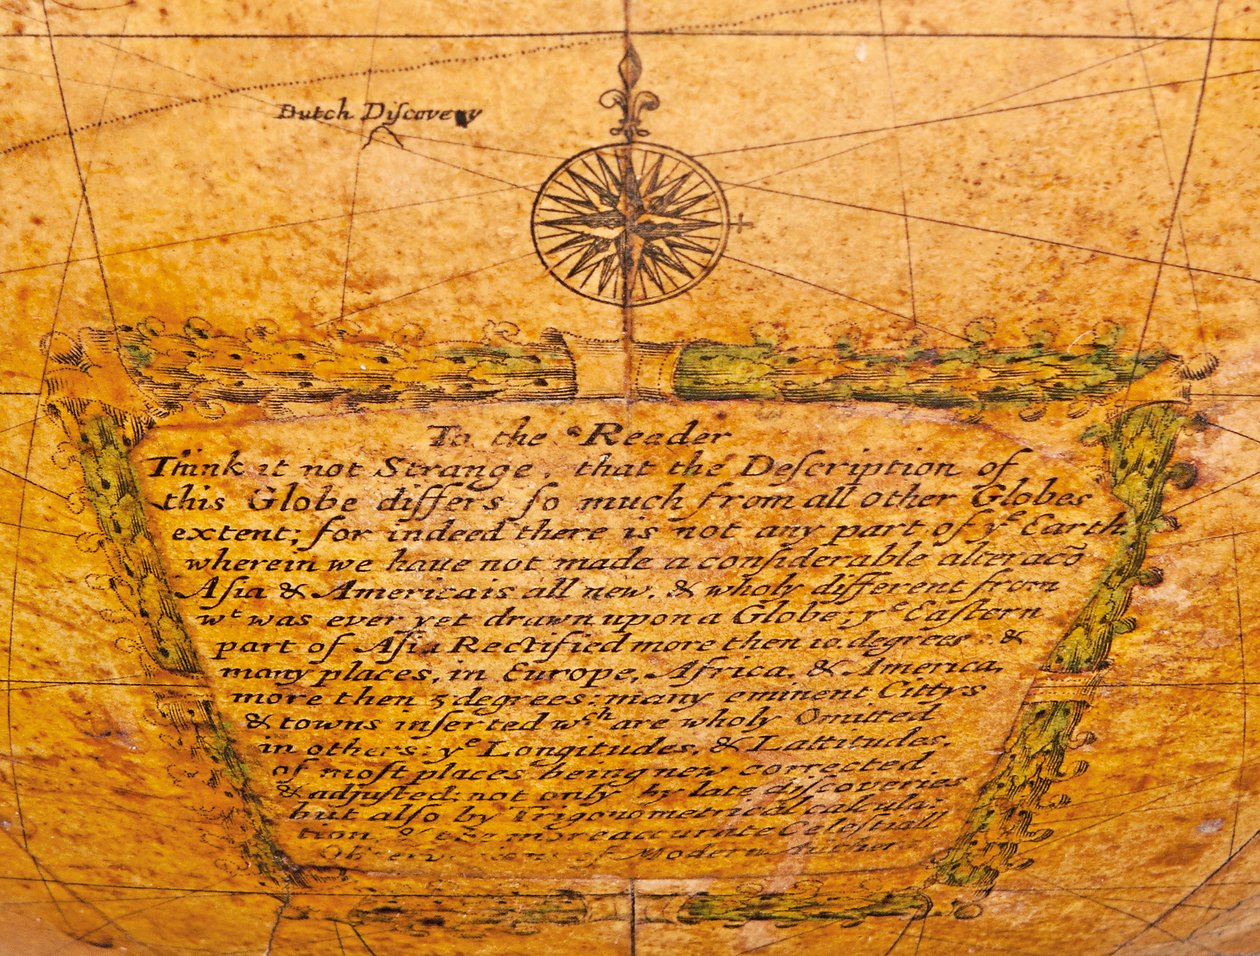 Dutch Diſcovery
To the Reader
Think it not Strange, that the Deſcription of
this Globe differs ſo much from all other Globes
extent; for indeed there is not any part of yᵉ Earth
wherein we haue not made a conſiderable alteracõ
Aſia & America is all new, & wholy different from
wᵗ was ever yet drawn upon a Globe; yᵉ Eastern
part of Aſia Rectified more then 10 degrees &
many places, in Europe, Africa, & America,
more then 5 degrees; many eminent Cittys
& towns inſerted wᶜʰ are wholy Omitted
in others; yᵉ Longitudes, & Lattitudes,
of moſt places being new corrected
& adjuſted; not only by late diſcoveries
but also by Trigonometrical calcula:
tion & yᵉ more accurate Celeſtiall
Obſervations of Modern Auther